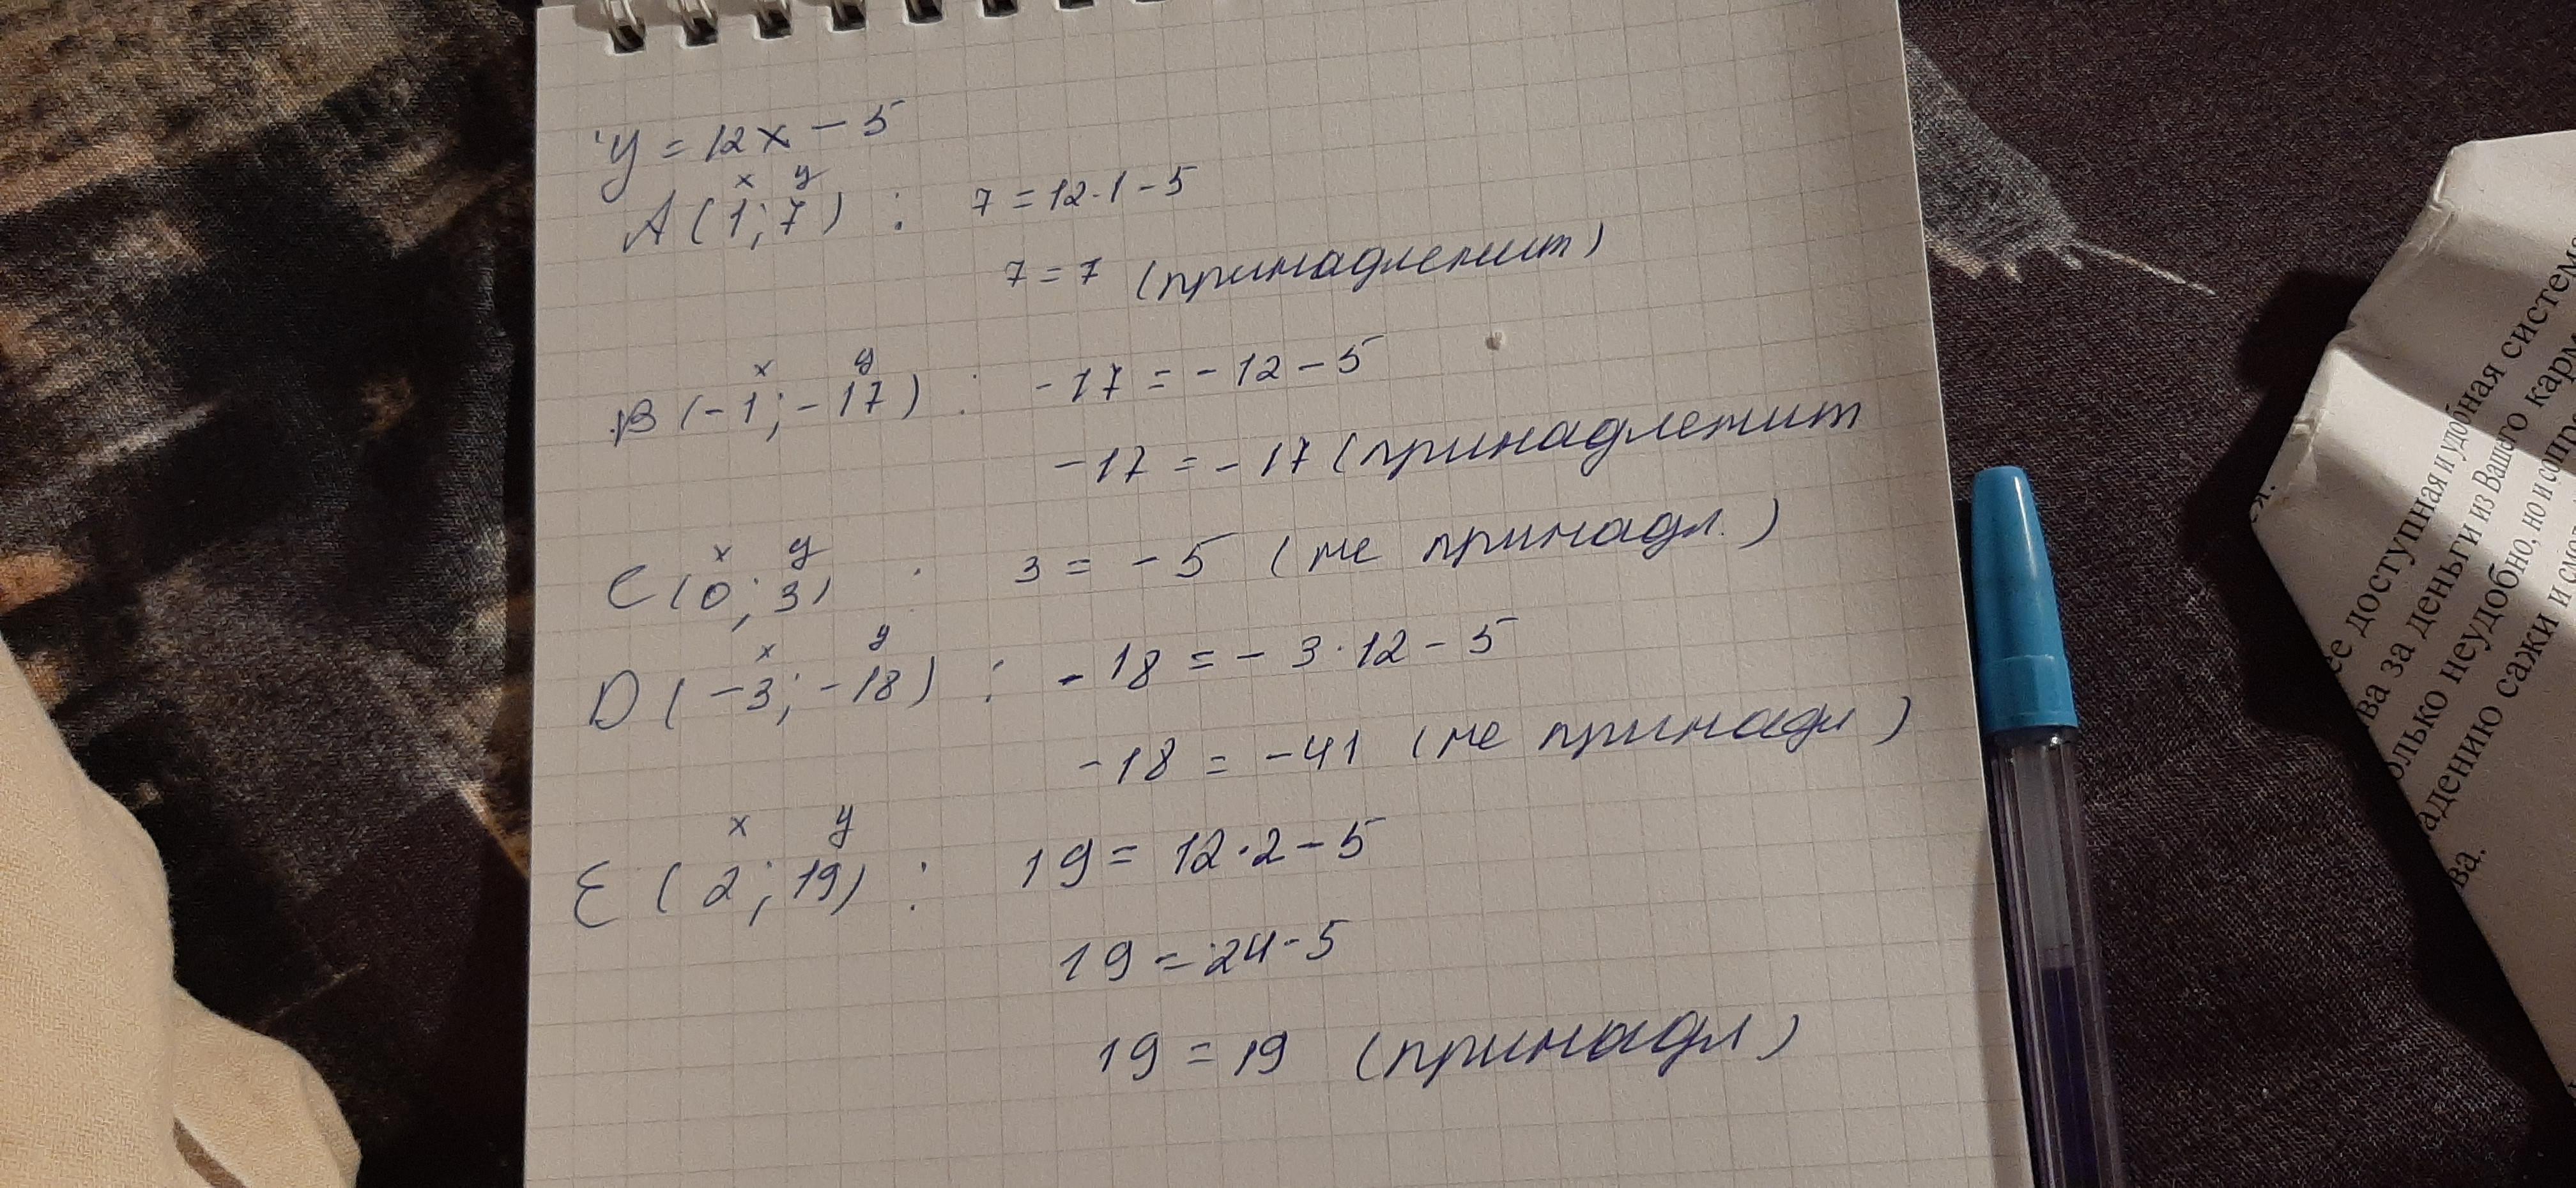 y = 12x - 5
x y
A (1; 7) : 7 = 12·1 - 5
7 = 7 (принадлежит)
x y
B (-1; -17) : -17 = -12 - 5
-17 = -17 (принадлежит
x y
C (0; 3) : 3 = -5 (не принадл.)
x y
D (-3; -18) : -18 = -3·12 - 5
-18 = -41 (не принадл)
x y
E (2; 19) : 19 = 12·2 - 5
19 = 24 - 5
19 = 19 (принадл)
ее доступная и удобная система
ва за деньги из Вашего
олько неудобно, но и
адению сажи и
ва.